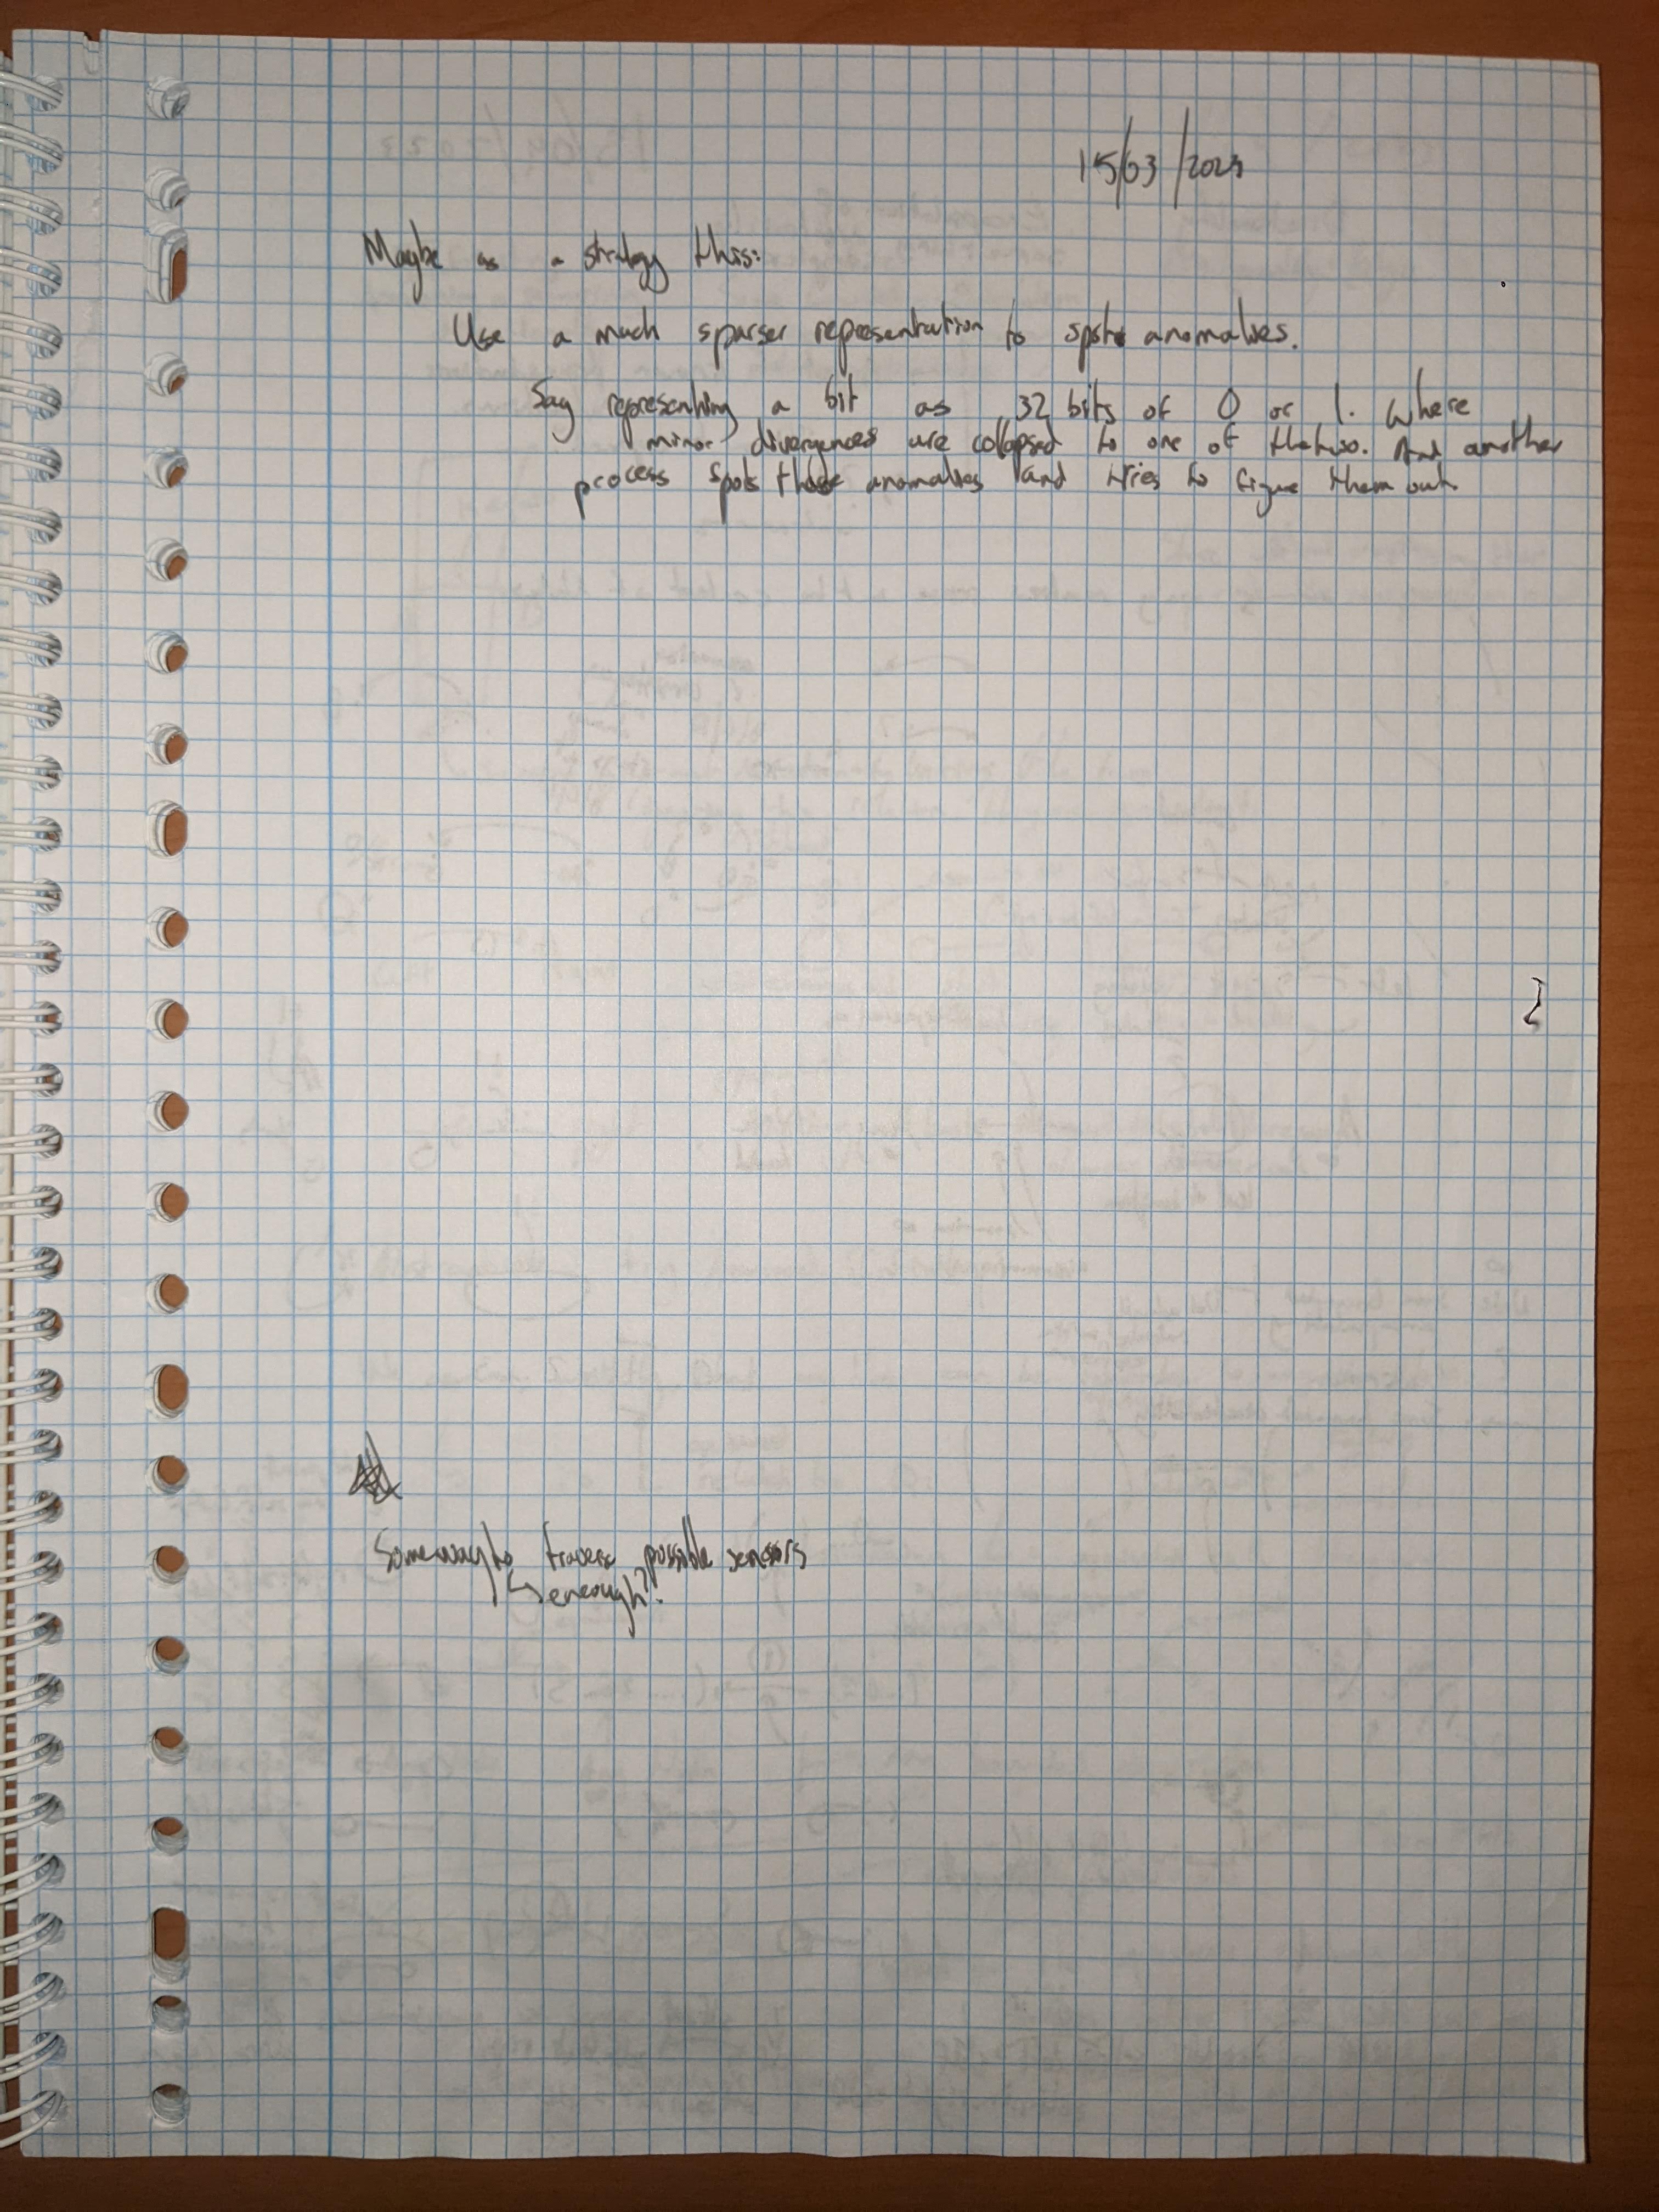 15/03/2024
Maybe as a strategy this:
Use a much sparser representation to spot anomalies.
Say representing a bit as 32 bits of 0 or 1. Where
minor divergences are collapsed to one of the two. And another
process spots those anomalies and tries to figure them out
Some way to traverse possible sensors
↳ eneough?